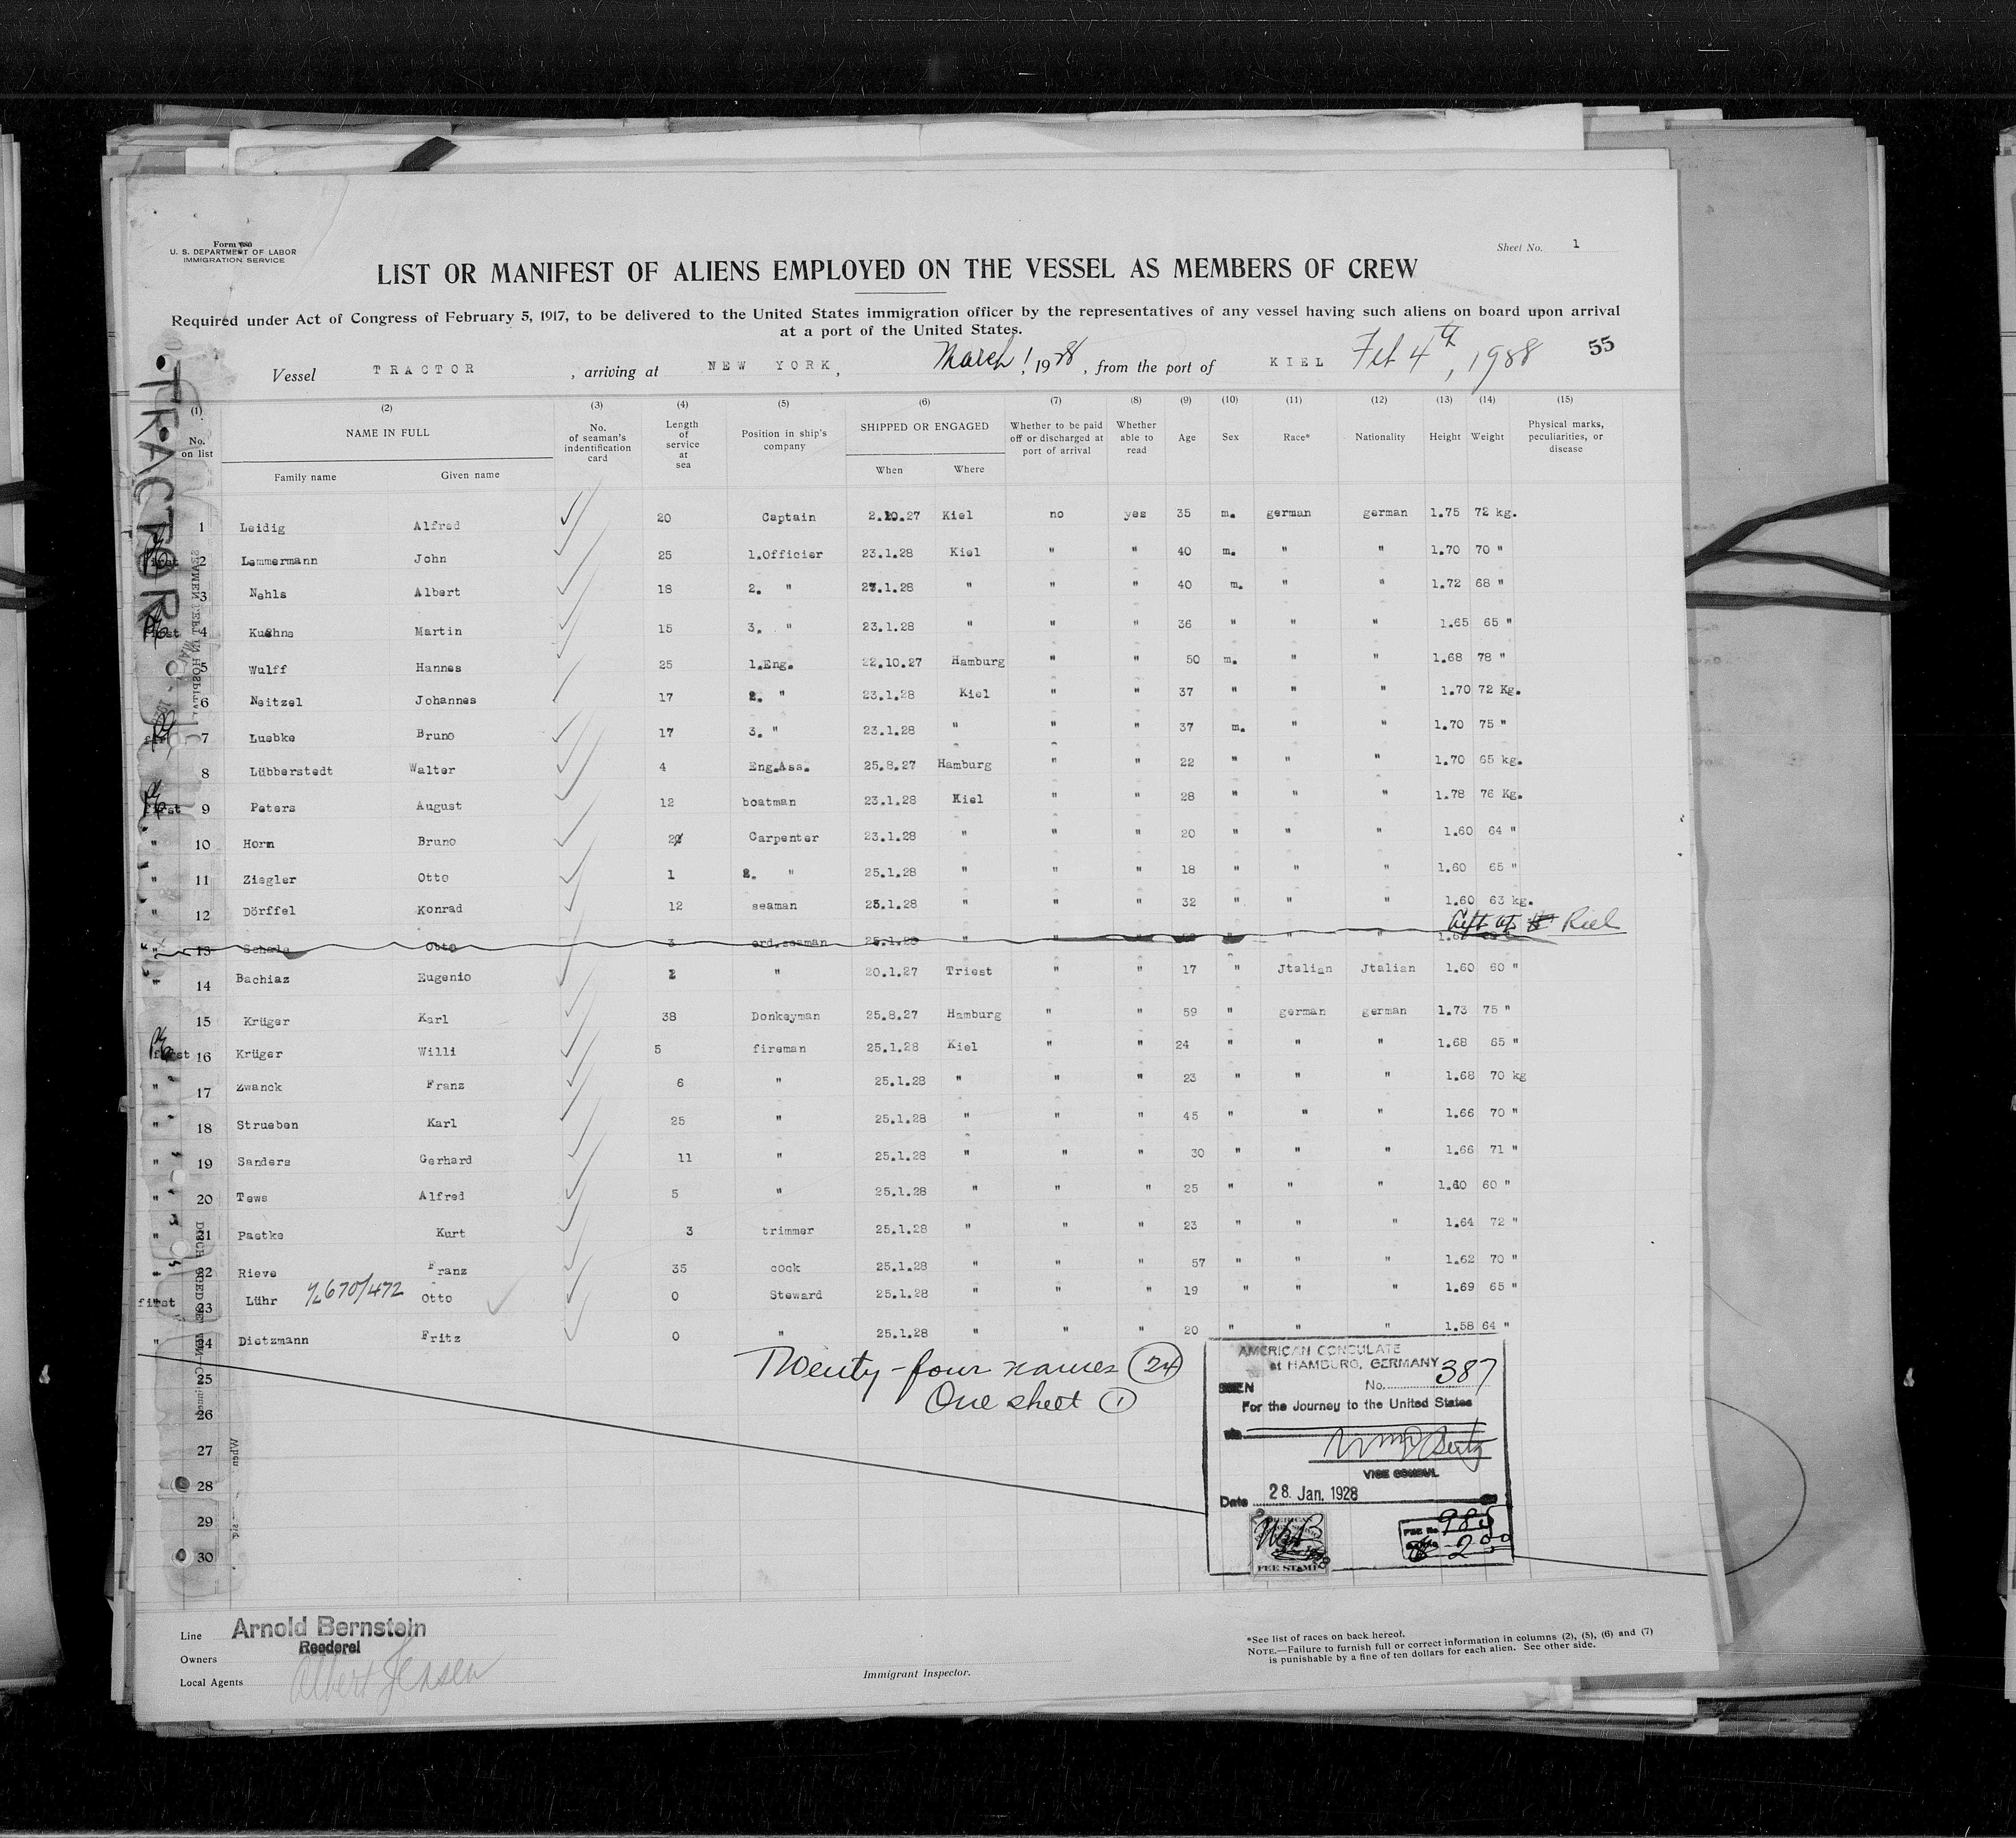 Form 680
U. S. DEPARTMENT OF LABOR
IMMIGRATION SERVICE
Sheet No. 1
LIST OR MANIFEST OF ALIENS EMPLOYED ON THE VESSEL AS MEMBERS OF CREW
Required under Act of Congress of February 5, 1917, to be delivered to the United States immigration officer by the representatives of any vessel having such aliens on board upon arrival
at a port of the United States.
55
Vessel TRACTOR, arriving at NEW YORK, March 1, 1928, from the port of KIEL Feb 4th, 1928
TRACTOR
(1) No. on list
(2) NAME IN FULL Family name Given name
(3) No. of seaman's indentification card
(4) Length of service at sea
(5) Position in ship's company
(6) SHIPPED OR ENGAGED When Where
(7) Whether to be paid off or discharged at port of arrival
(8) Whether able to read
(9) Age
(10) Sex
(11) Race*
(12) Nationality
(13) Height
(14) Weight
(15) Physical marks, peculiarities, or disease
1 Leidig Alfred 20 Captain 2.10.27 Kiel no yes 35 m. german german 1.75 72 kg.
first 2 Lemmermann John 25 1.Officier 23.1.28 Kiel " " 40 m. " " 1.70 70 "
3 Nehls Albert 18 2. " 27.1.28 " " " 40 m. " " 1.72 68 "
first 4 Kuehne Martin 15 3. " 23.1.28 " " " 36 " " " 1.65 65 "
5 Wulff Hannes 25 1.Eng. 22.10.27 Hamburg " " 50 m. " " 1.68 78 "
6 Neitzel Johannes 17 2. " 23.1.28 Kiel " " 37 " " " 1.70 72 Kg.
first 7 Luebke Bruno 17 3. " 23.1.28 " " " 37 m. " " 1.70 75 "
8 Lübberstedt Walter 4 Eng.Ass. 25.8.27 Hamburg " " 22 " " " 1.70 65 kg.
first 9 Peters August 12 boatman 23.1.28 Kiel " " 28 " " " 1.78 76 Kg.
" 10 Horn Bruno 2 Carpenter 23.1.28 " " " 20 " " " 1.60 64 "
" 11 Ziegler Otto 1 2. " 25.1.28 " " " 18 " " " 1.60 65 "
" 12 Dörffel Konrad 12 seaman 25.1.28 " " " 32 " " " 1.60 63 kg.
Left at Kiel
" 13 Schalg Otto 3 ord.seaman 25.1.28 " " " " " "
" 14 Bachiaz Eugenio 2 " 20.1.27 Triest " " 17 " Jtalian Jtalian 1.60 60 "
15 Krüger Karl 38 Donkeyman 25.8.27 Hamburg " " 59 " german german 1.73 75 "
first 16 Krüger Willi 5 fireman 25.1.28 Kiel " " 24 " " " 1.68 65 "
" 17 Zwanck Franz 6 " 25.1.28 " " " 23 " " " 1.68 70 kg
" 18 Strueben Karl 25 " 25.1.28 " " " 45 " " " 1.66 70 "
" 19 Sanders Gerhard 11 " 25.1.28 " " " 30 " " " 1.66 71 "
" 20 Tews Alfred 5 " 25.1.28 " " " 25 " " " 1.60 60 "
" 21 Paetke Kurt 3 trimmer 25.1.28 " " " 23 " " " 1.64 72 "
" 22 Rieve Franz 35 cock 25.1.28 " " " 57 " " " 1.62 70 "
first 23 Lühr 670/472 Otto 0 Steward 25.1.28 " " " 19 " " " 1.69 65 "
" 24 Dietzmann Fritz 0 " 25.1.28 " " " 20 " " " 1.58 64 "
25
26
27
28
29
30
Twenty-four names (24)
One sheet (1)
AMERICAN CONSULATE
at HAMBURG, GERMANY
SEEN No. 387
For the Journey to the United States
via
VICE CONSUL
Date 28. Jan. 1928
FEE No. 985
$ 2.00
FEE STAMP
Line Arnold Bernstein
Reederei
Owners
Local Agents Albert Jensen
Immigrant Inspector.
*See list of races on back hereof.
NOTE.—Failure to furnish full or correct information in columns (2), (5), (6) and (7)
is punishable by a fine of ten dollars for each alien. See other side.